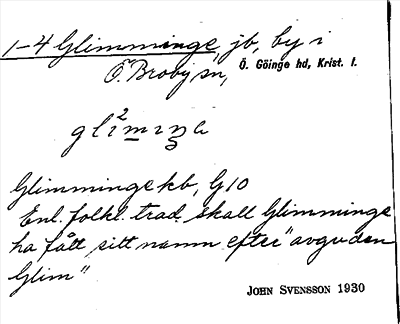 1-4 Glimminge, jb, by i
Ö. Broby sn, Ö. Göinge hd, Krist. l.
Glimminge kb, G10
Enl. folkl. trad. skall Glimminge
ha fått sitt namn efter "avguden
Glim"
JOHN SVENSSON 1930